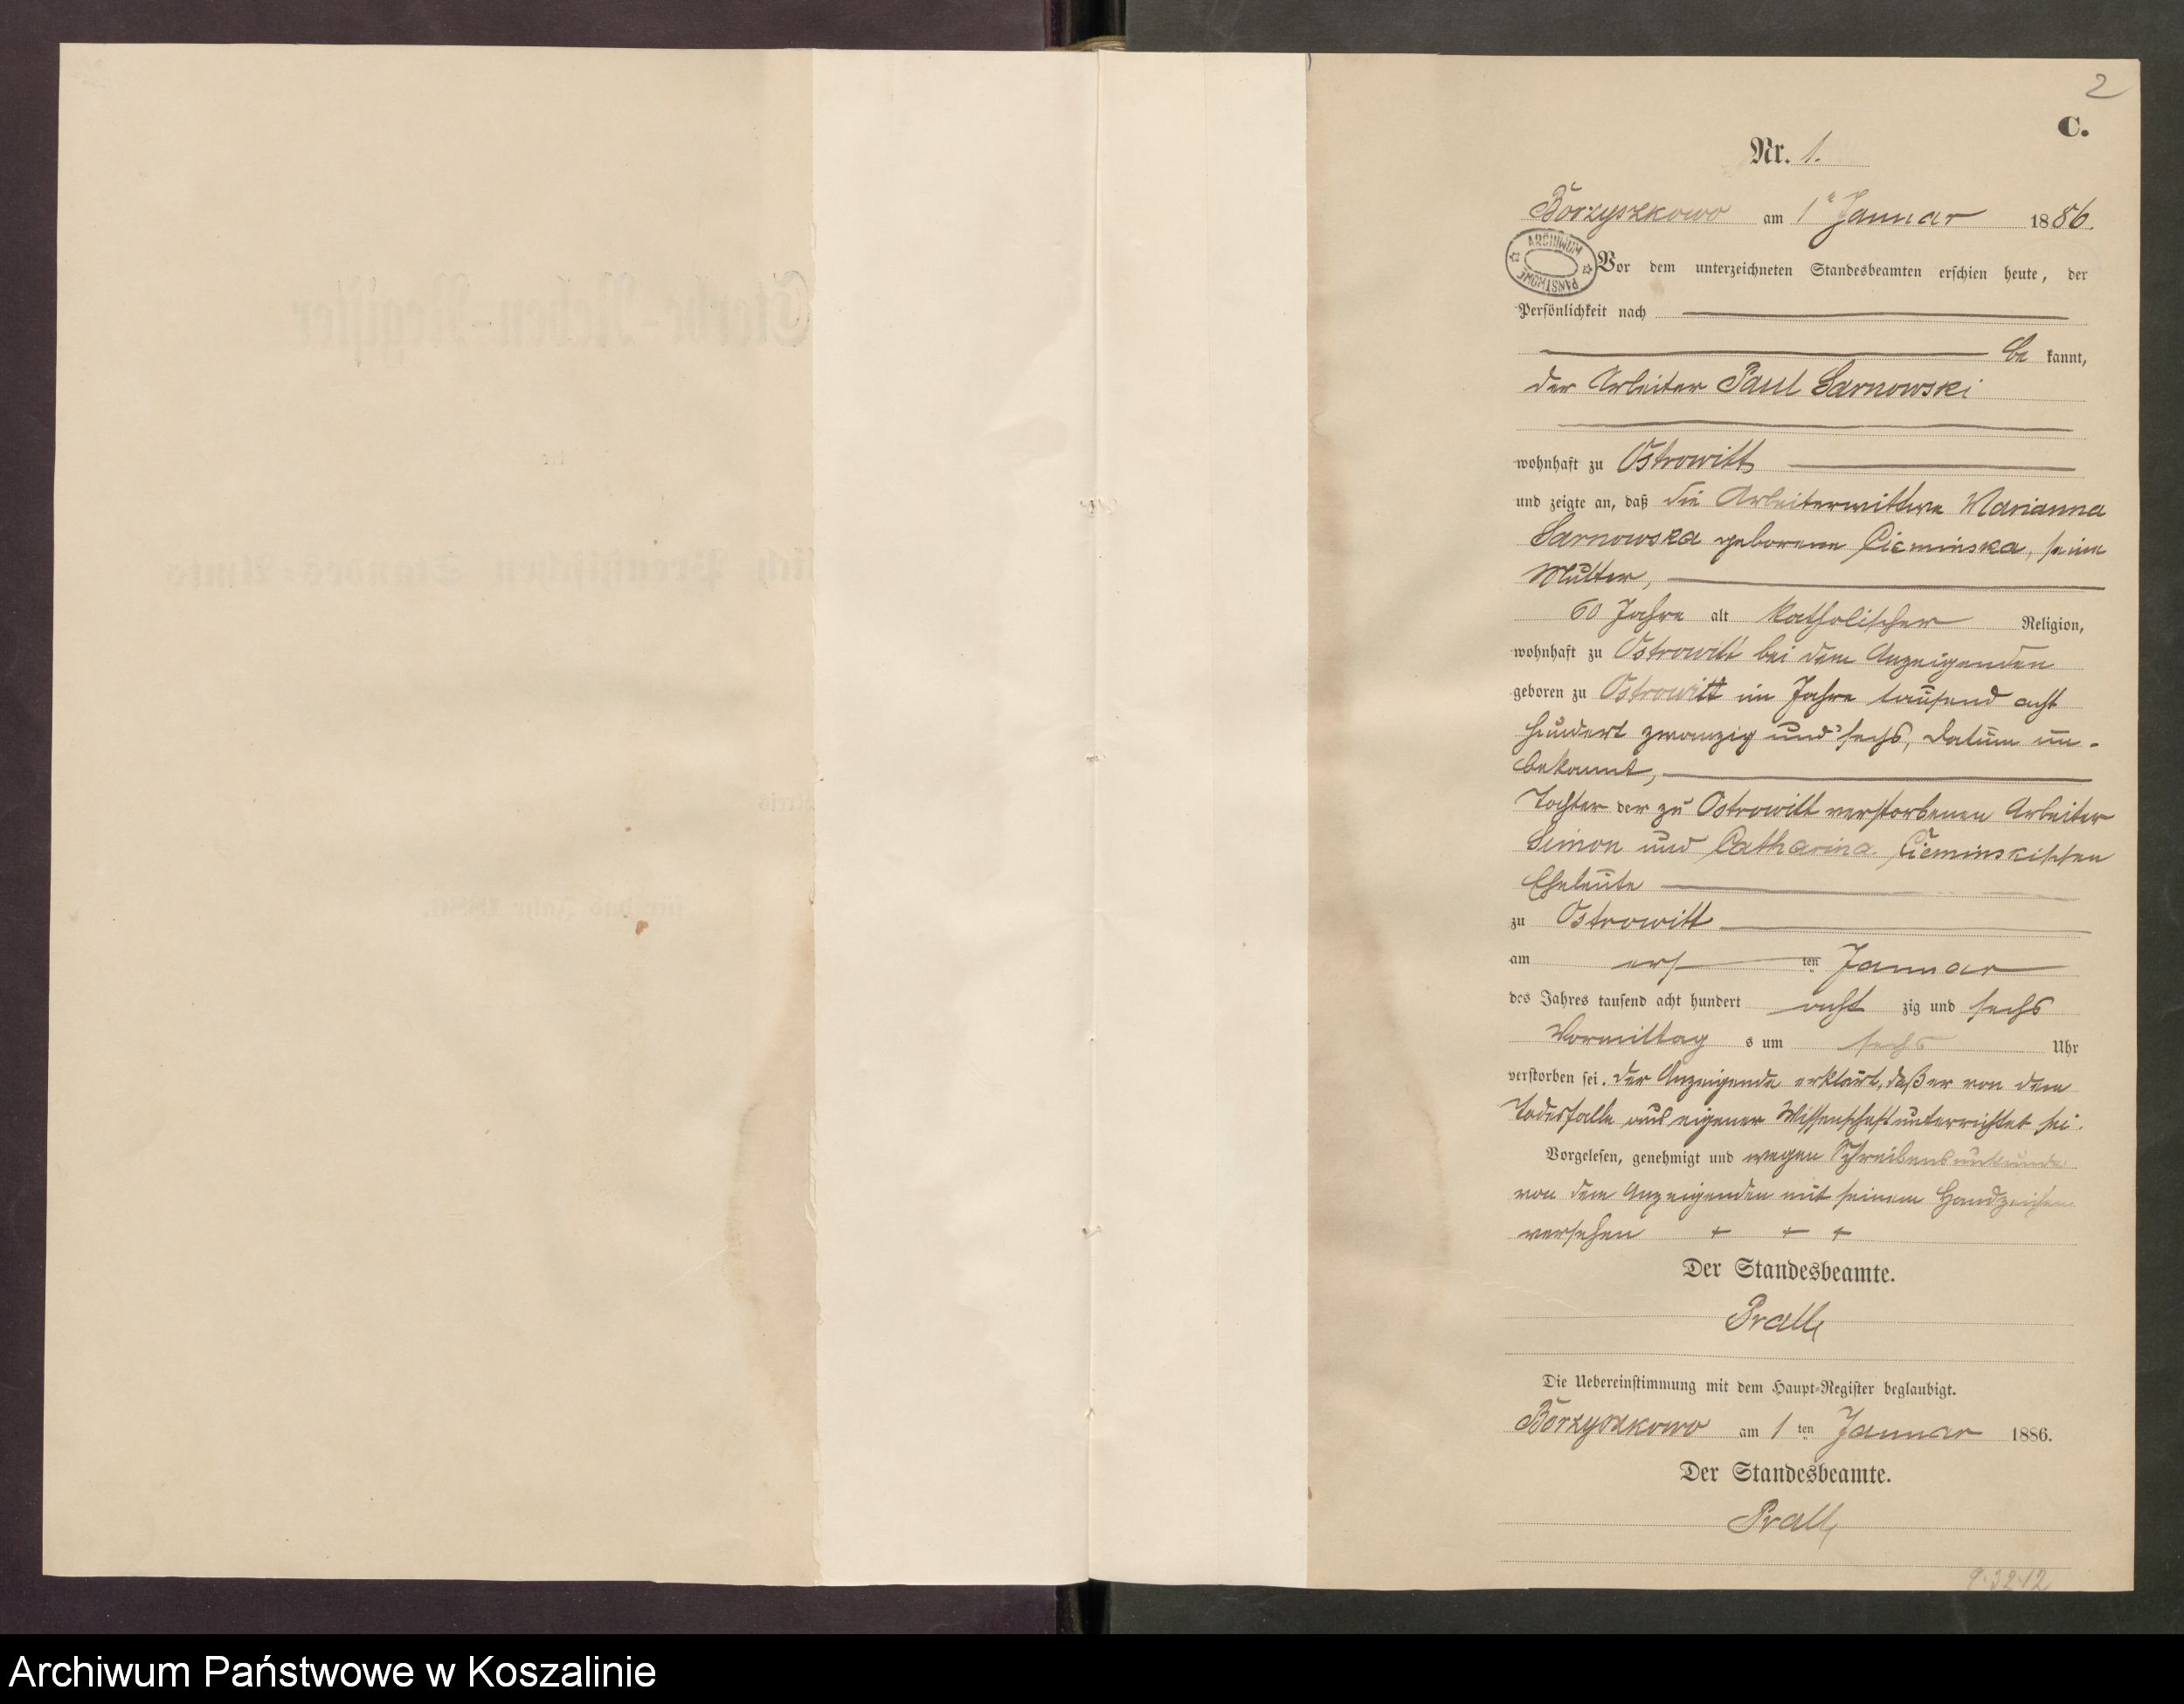 2
C.
Nr. 1.
Borzyszkowo am 1ten Januar 1886.
ARCHIWUM PAŃSTWOWE
Vor dem unterzeichneten Standesbeamten erschien heute, der
Persönlichkeit nach
be kannt,
der Arbeiter Paul Sarnowski
wohnhaft zu Ostrowitt
und zeigte an, daß die Arbeiterwittwe Marianna
Sarnowska geborene Cieminska, seine
Mutter,
60 Jahre alt katholischer Religion,
wohnhaft zu Ostrowitt bei dem Anzeigenden
geboren zu Ostrowitt im Jahre tausend acht
hundert zwanzig und sechs, Datum un-
bekannt,
Tochter der zu Ostrowitt verstorbenen Arbeiter
Simon und Catharina Cieminskischen
Eheleute
zu Ostrowitt
am ers ten Januar
des Jahres tausend acht hundert acht zig und sechs
Vormittag s um sechs Uhr
verstorben sei. Der Anzeigende erklärt, daß er von dem
Todesfalle aus eigener Wissenschaft unterrichtet sei.
Vorgelesen, genehmigt und wegen Schreibensunkunde
von dem Anzeigenden mit seinem Handzeichen
versehen + + +
Der Standesbeamte.
Prall
Die Uebereinstimmung mit dem Haupt-Register beglaubigt.
Borzyszkowo am 1 ten Januar 1886.
Der Standesbeamte.
Prall
Archiwum Państwowe w Koszalinie